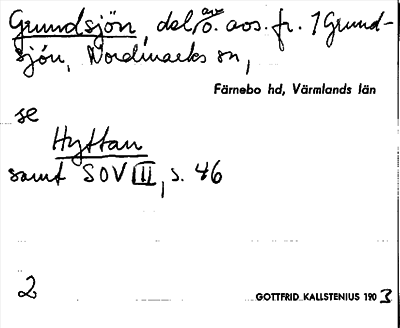 Grundsjön, del av o. aos. fr. 1 Grund-
sjön, Nordmarks sn,
Färnebo hd, Värmlands län
se
Hyttan
samt SOV III, s. 46
2
GOTTFRID KALLSTENIUS 1903